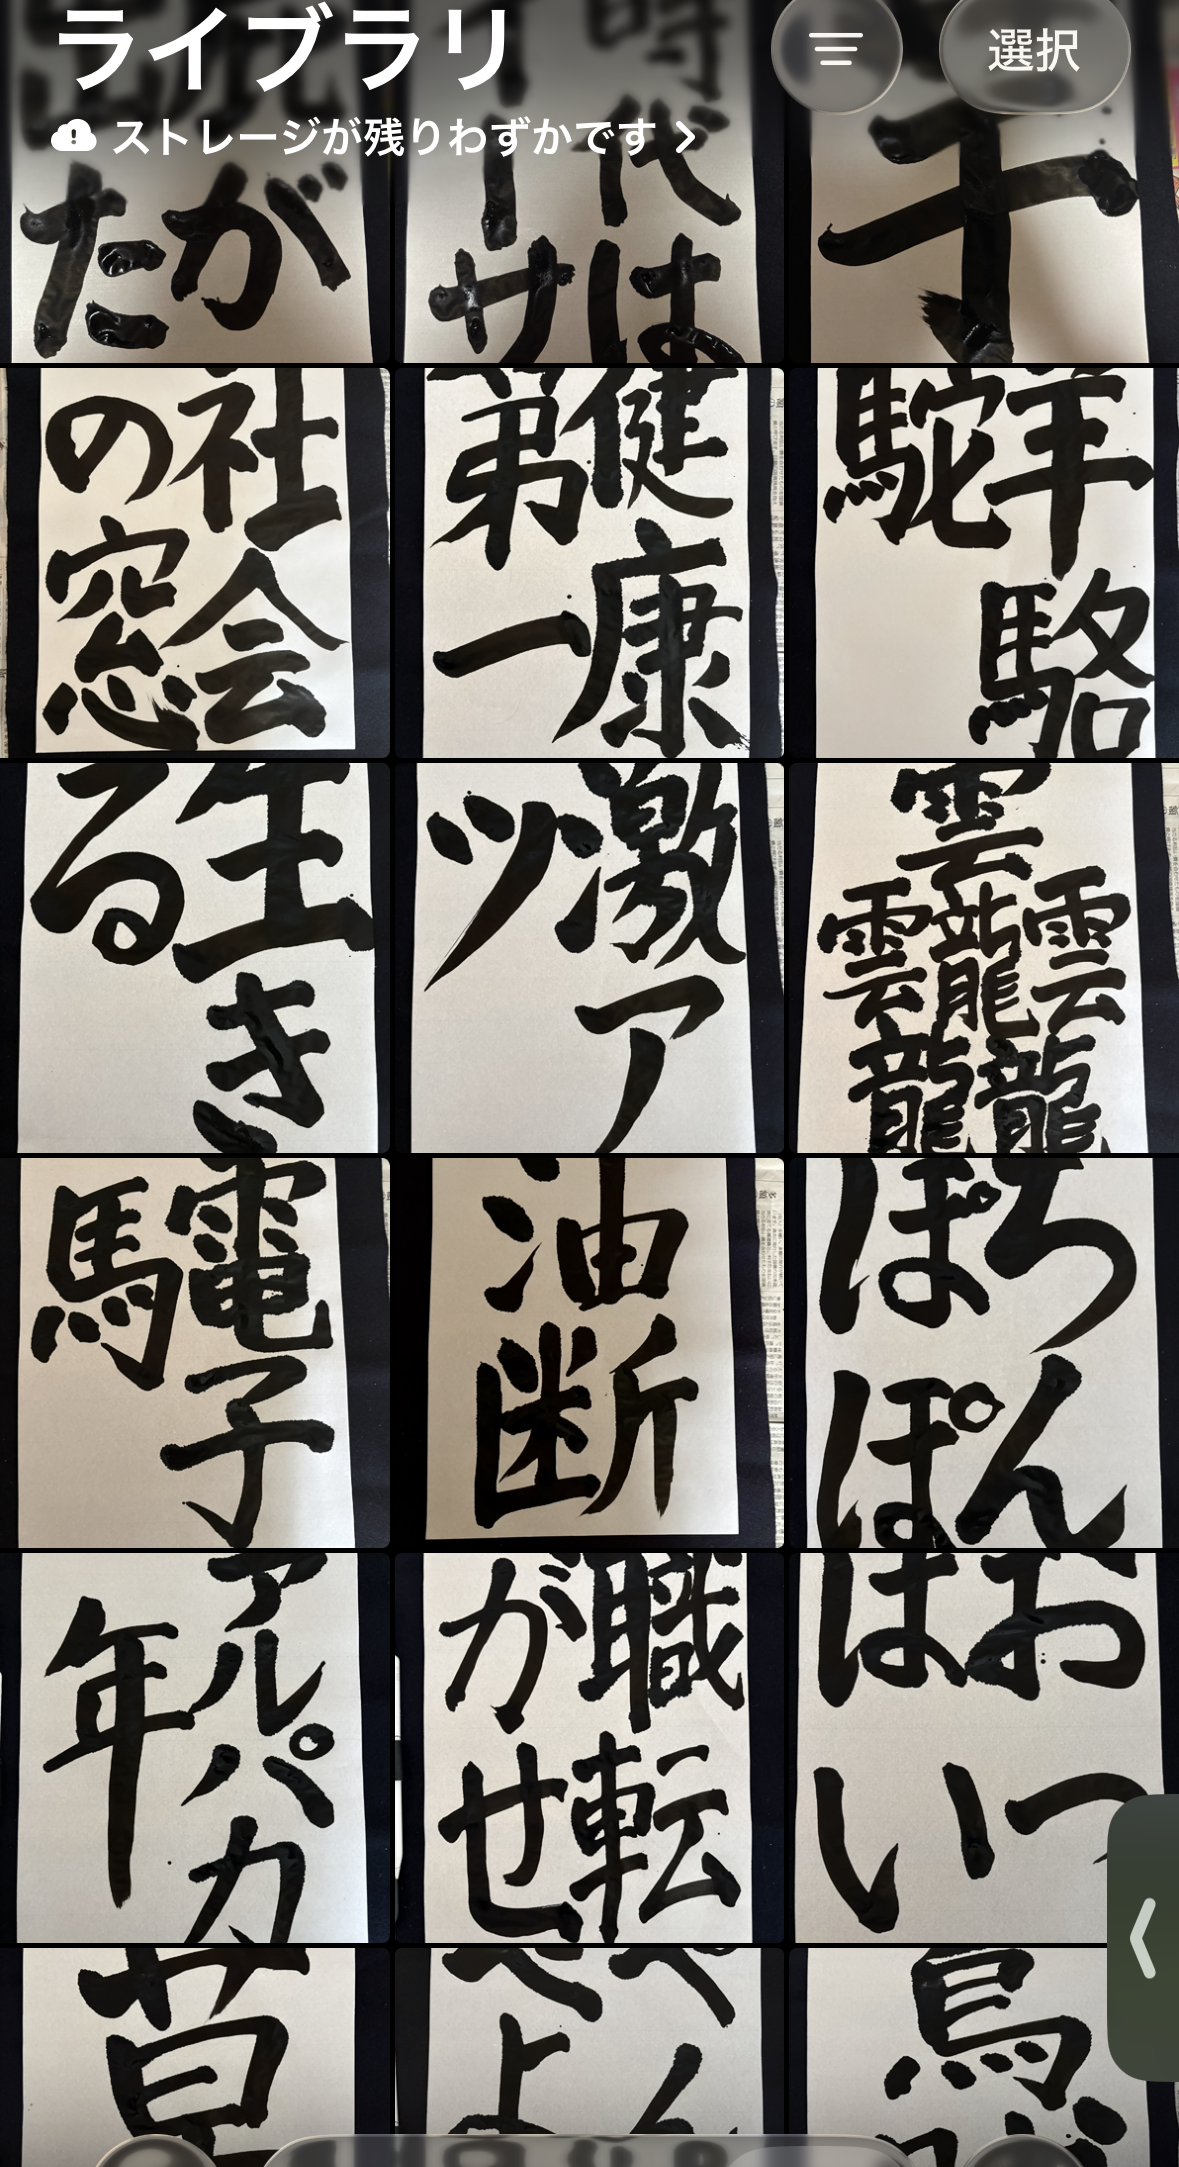 ライブラリ
選択
ストレージが残りわずかです
たが
代は
サ
千
社会
の窓
健康
第一
羊駱
駝
生き
る
激ア
ツ
雲
雲龍雲
龍龍
電子
馬
油
断
ちん
ぽぽ
アルパカ
年
職転
がせ
おっ
ぱい
草
鳥